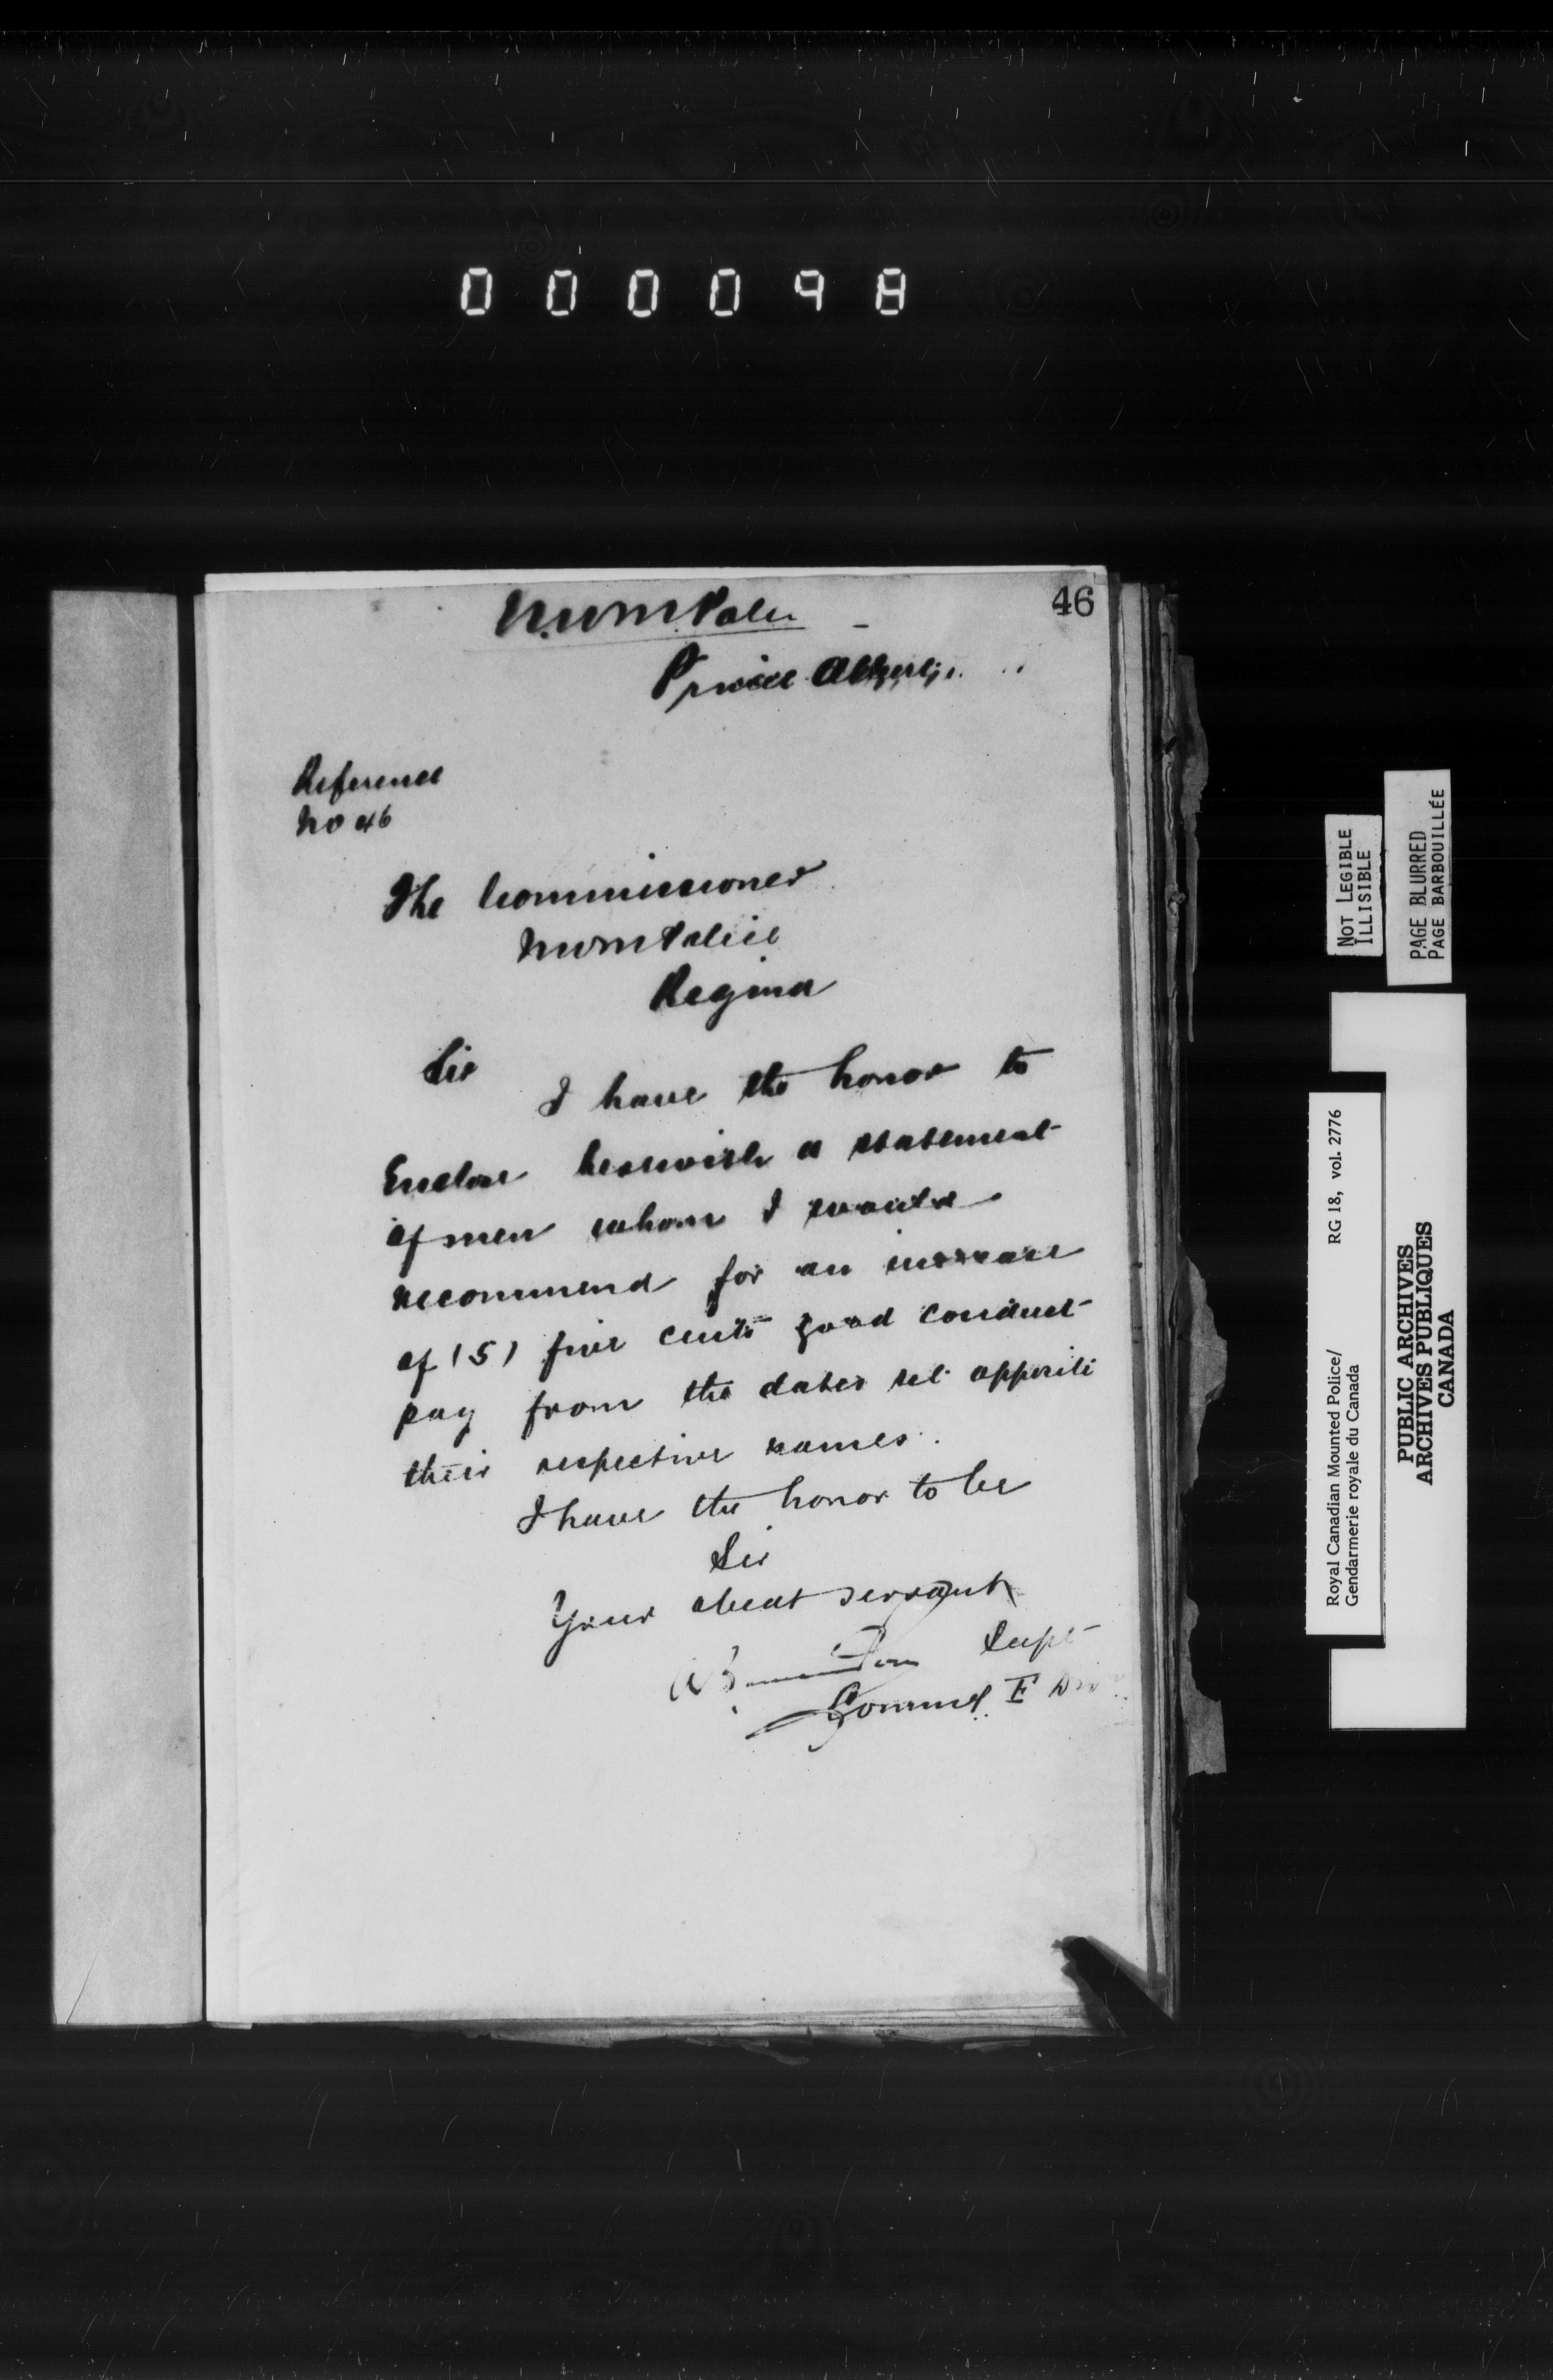 000098
46
N.W.M. Police
Prince Albert
Reference
No 46
The Commissioner
NWM Police
Regina
Sir
I have the honor to
Enclose herewith a statement
of men whom I would
recommend for an increase
of (5) five cents good conduct
pay from the dates set opposite
their respective names.
I have the honor to be
Sir
Your obedt servant
Supt
Commdg. F Div
NOT LEGIBLE
ILLISIBLE
PAGE BLURRED
PAGE BARBOUILLÉE
Royal Canadian Mounted Police/ RG 18, vol. 2776
Gendarmerie royale du Canada
PUBLIC ARCHIVES
ARCHIVES PUBLIQUES
CANADA